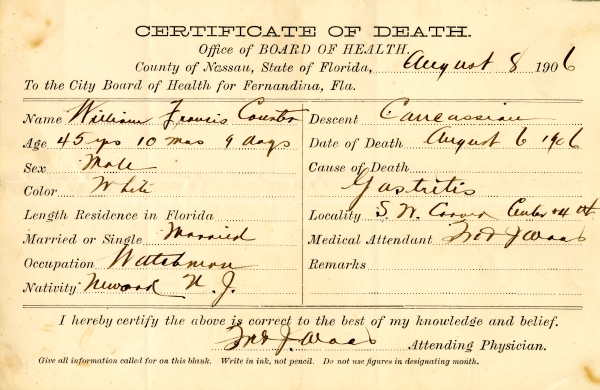 CERTIFICATE OF DEATH.
Office of BOARD OF HEALTH.
County of Nassau, State of Florida, August 8 1906
To the City Board of Health for Fernandina, Fla.
Name William Francis
Age 45 yrs 10 mos 9 days
Sex Male
Color White
Length Residence in Florida
Married or Single Married
Occupation Watchman
Nativity Newark N. J.
Descent Caucassian
Date of Death August 6 1906
Cause of Death
Gastritis
Locality S. W. Corner Center & 4th
Medical Attendant
Remarks
I hereby certify the above is correct to the best of my knowledge and belief.
Attending Physician.
Give all information called for on this blank. Write in ink, not pencil. Do not use figures in designating month.